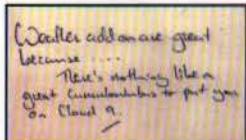 Weather addon are great
because ....
There's nothing like a
great Cumulonimbus to put you
on Cloud 9.